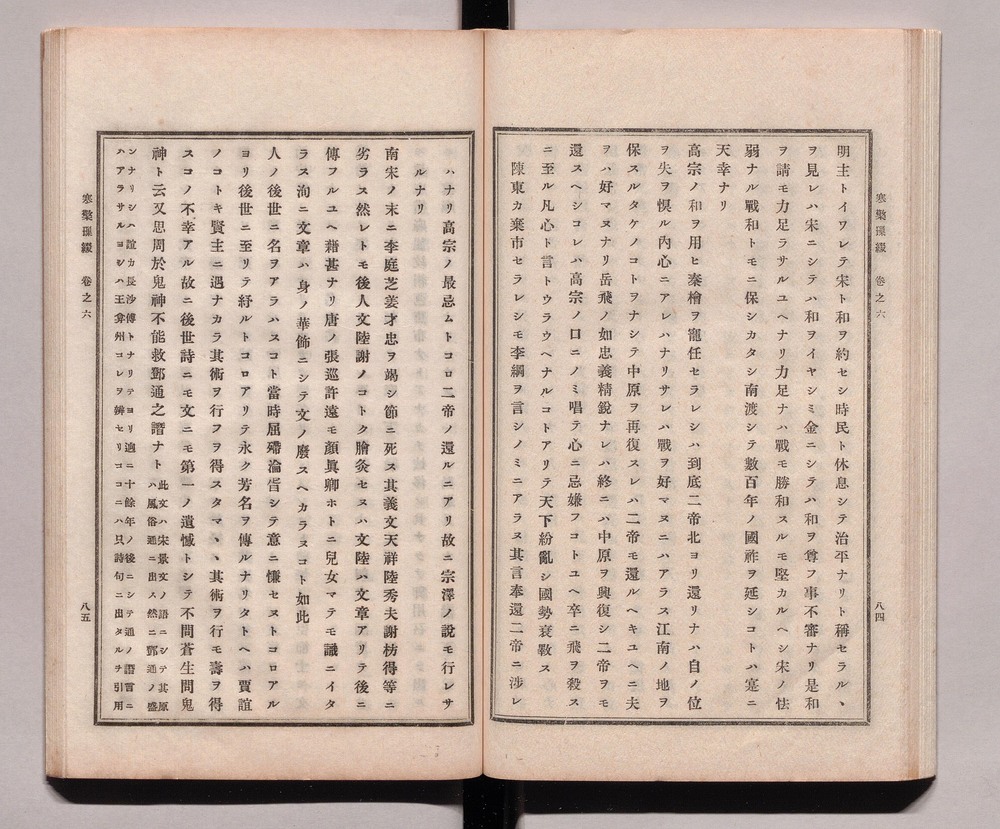 寒檠璅綴 卷之六
八四
明主トイワレテ宋ト和ヲ約セシ時民ト休息シテ治平ナリト稱セラルヽ
ヲ見レハ宋ニシテハ和ヲイヤシミ金ニシテハ和ヲ尊フ事不審ナリ是和
ヲ請モ力足ラサルユヘナリ力足ナハ戰モ勝和スルモ堅カルヘシ宋ノ怯
弱ナル戰和トモニ保シカタシ南渡シテ數百年ノ國祚ヲ延シコトハ寔ニ
天幸ナリ
高宗ノ和ヲ用ヒ秦檜ヲ寵任セラレシハ到底二帝北ヨリ還リナハ自ノ位
ヲ失ヲ惧ル內心ニアレハナリサレハ戰ヲ好マヌニハアラス江南ノ地ヲ
保スルタケノコトヲナシテ中原ヲ再復スレハ二帝モ還ルヘキユヘニ夫
ヲハ好マヌナリ岳飛ノ如忠義精銳ナレハ終ニハ中原ヲ興復シ二帝ヲモ
還スヘシコレハ高宗ノ口ニノミ唱テ心ニ忌嫌フコトユヘ卒ニ飛ヲ殺ス
ニ至ル凡心ト言トウラウヘナルコトアリテ天下紛亂シ國勢衰斁ス
陳東カ棄市セラレシモ李綱ヲ言シノミニアラス其言奉還二帝ニ涉レ
ハナリ高宗ノ最忌ムトコロ二帝ノ還ルニアリ故ニ宗澤ノ說モ行レサ
ルナリ
南宋ノ末ニ李庭芝姜才忠ヲ竭シ節ニ死ス其義文天祥陸秀夫謝枋得等ニ
劣ラス然レトモ後人文陸謝ノコトク膾灸セヌハ文陸ハ文章アリテ後ニ
傳フルユヘ藉甚ナリ唐ノ張巡許遠モ顏眞卿ホトニ兒女マテモ識ニイタ
ラス洵ニ文章ハ身ノ華飾ニシテ文ノ廢スヘカラヌコト如此
人ノ後世ニ名ヲアラハスコト當時屈殢淪眥シテ意ニ慊セヌトコロアル
ヨリ後世ニ至リテ紓ルトコロアリテ永ク芳名ヲ傳ルナリタトヘハ賈誼
ノコトキ賢主ニ遇ナカラ其術ヲ行フヲ得スタマヽヽ其術ヲ行モ壽ヲ得
スコノ不幸アル故ニ後世詩ニモ文ニモ第一ノ遺憾トシテ不問蒼生問鬼
神ト云又思周於鬼神不能救鄧通之譖ナト
此文ハ宋景文ノ語ニシテ其原
ハ風俗通ニ出ス然ニ鄧通ノ盛
ンナリシハ誼カ長沙傅トナリテヨリ遖ニ十餘年ノ後ニシテ通ノ譖言ニ
ハアラサルヨシハ王弇州コレヲ辨セリココニハ只詩句ニ出タルヲ引用
寒檠璅綴 卷之六
八五